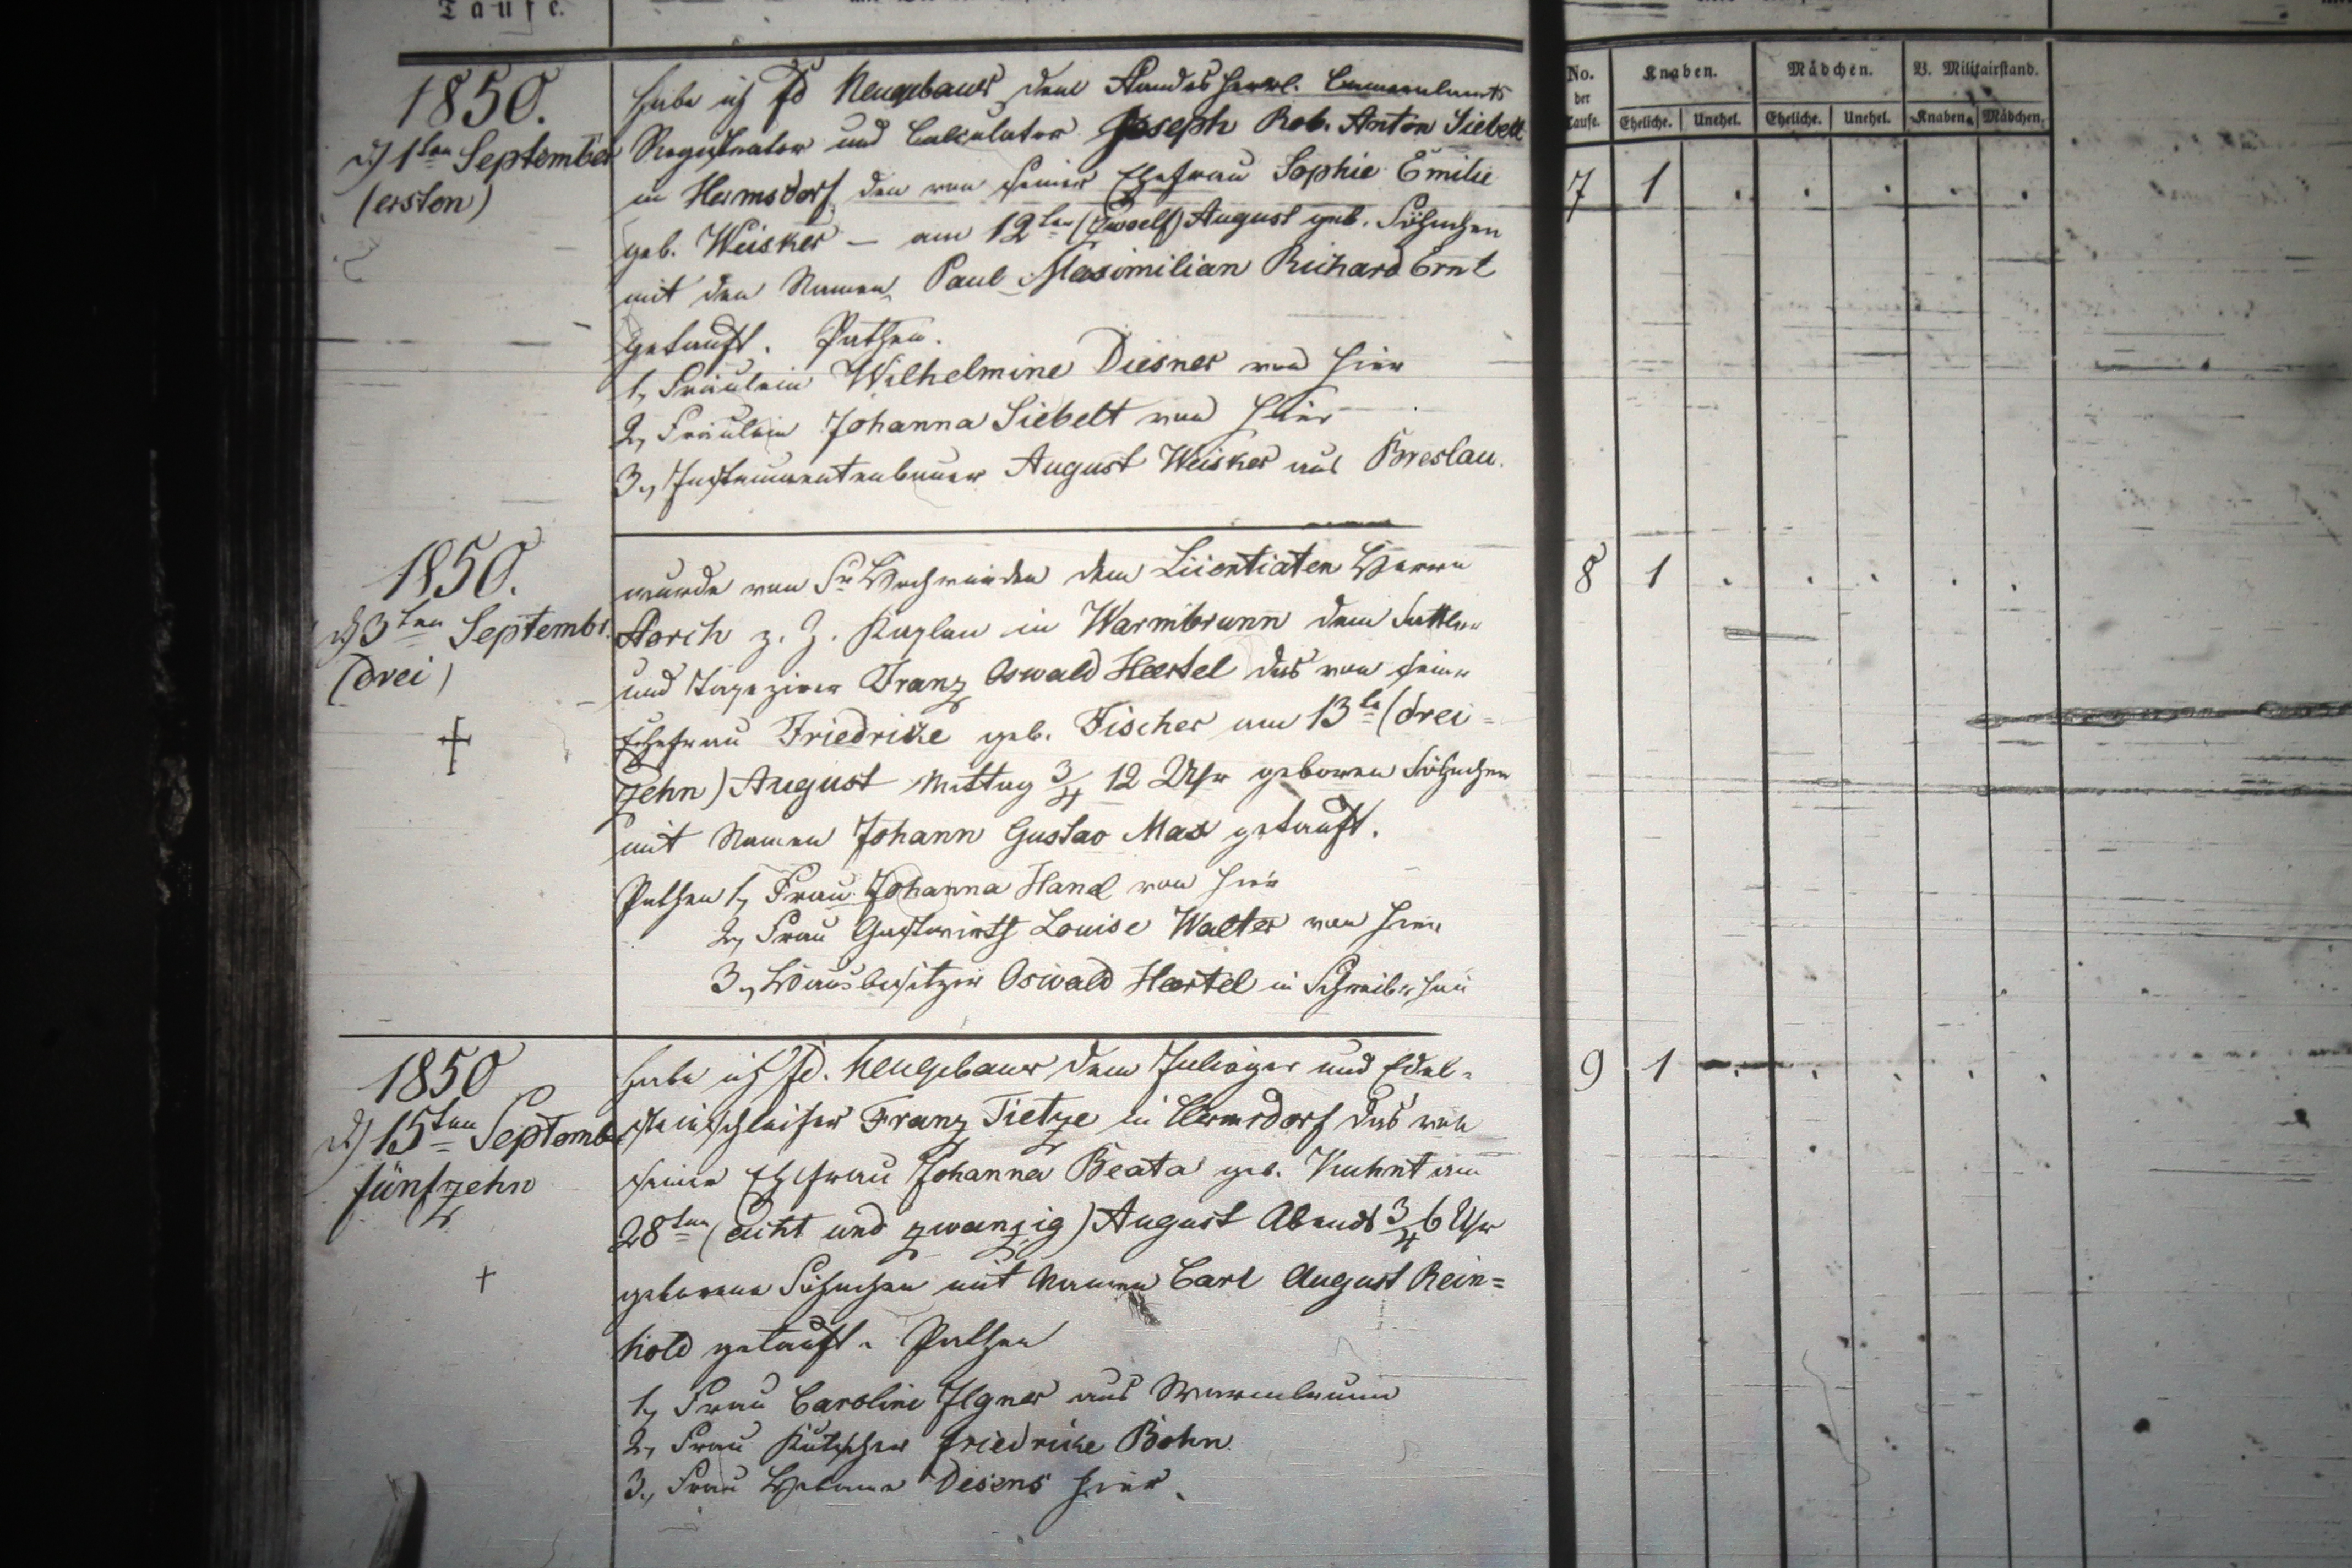 Taufe.
1850.
d) 1ten September
(ersten)
habe ich Fd Neugebauer dem Standesherrl. Cameralamts
Registrator und Calculator Joseph Rob. Anton Siebelt
in Hermsdorf den von seiner Ehefrau Sophie Emilie
geb. Weisker – am 12ten (zwoelf) August geb. Söhnchen
mit den Namen Paul Maximilian Richard Ernt
getauft. Pathen.
1, Fräulein Wilhelmine Diesner von hier
2, Fräulein Johanna Siebelt von hier
3., Instrumentenbauer August Weisker aus Breslau.
1850.
d) 3ten Septembr.
(drei)
wurde von Sr Hochwürden dem Licentiaten Herrn
Storch z. Z. Kaplan in Warmbrunn dem Sattler
und Tapezirer Franz Oswald Haertel das von seiner
Ehefrau Friedricke geb. Fischer am 13te (drei=
zehn) August Mittag 3/4 12 Uhr geboren Söhnchen
mit Namen Johann Gustav Max getauft.
Pathen 1, Frau Johanna Hand von hier
2, Frau Gastwirth Louise Walter von hier
3., Hausbesitzer Oswald Haertel in Schreiberhau
1850
d) 15ten Septemb
fünfzehn
habe ich Fd. Neugebauer dem Inlieger und Edel=
steinschleifer Franz Tietze in Hermsdorf das von
seiner Ehefrau Johanna Beata geb. Kuhnt am
28ten (acht und zwanzig) August Abends 3/4 6 Uhr
geborene Söhnchen mit Namen Carl August Rein=
hold getauft. Pathen
1, Frau Caroline Ilgner aus Warmbrunn
2, Frau Kutscher Friedricke Böhn
3., Frau Hebame Desens hier.
No. der Taufe.
Knaben.
Mädchen.
V. Militairstand.
Eheliche. Unehel. Eheliche. Unehel. Knaben. Mädchen.
7 1 . . . . .
8 1 . . . . .
9 1 . . . . .